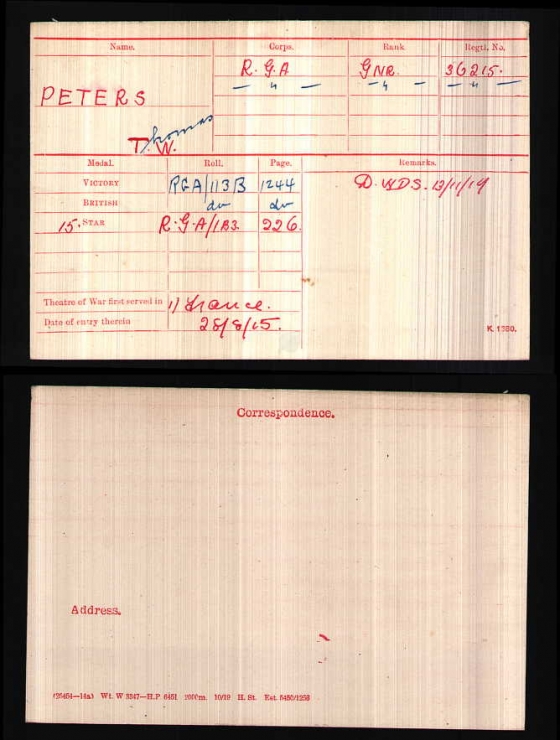 Name. Corps. Rank Regtl. No.
R.G.A GNR. 36215.
— " — — " — — " —
PETERS
Thomas
T. W.
Medal. Roll. Page. Remarks.
VICTORY RGA/113B 1244 D. WDS. 13/11/19
BRITISH do do
15. STAR R.G.A/1B3. 226.
Theatre of War first served in 1) France.
Date of entry therein 28/8/15.
K 1380.
Correspondence.
Address.
Wt. W 3347—H.P. 6451 10/19 H. St.